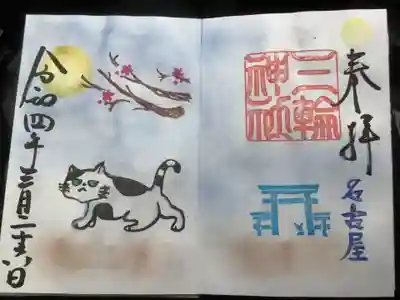 奉拝
三輪
神社
名古屋
令和四年三月二十六日